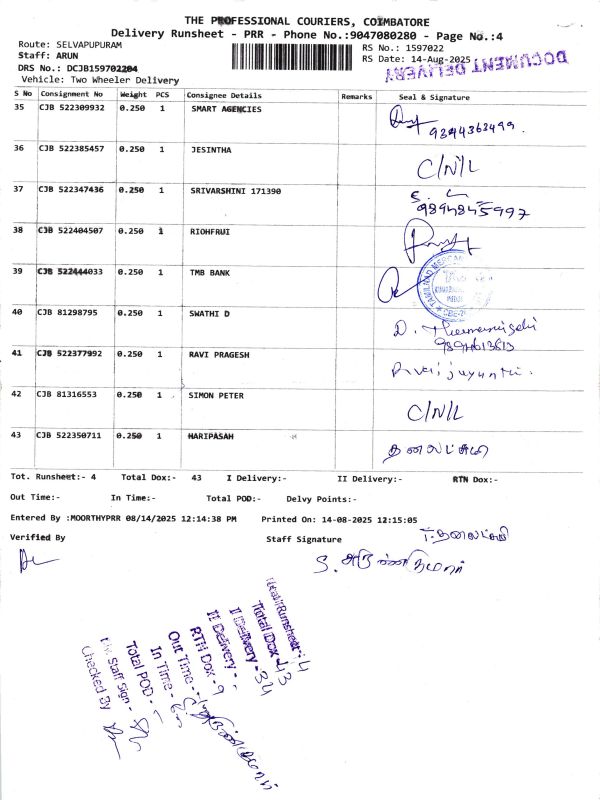 THE PROFESSIONAL COURIERS, COIMBATORE
Delivery Runsheet - PRR - Phone No.:9047080280 - Page No.:4
Route: SELVAPUPURAM
RS No.: 1597022
Staff: ARUN
RS Date: 14-Aug-2025
DOCUMENT DELIVERY
DRS No.: DCJB159702204
Vehicle: Two Wheeler Delivery
S No Consignment No Weight PCS Consignee Details Remarks Seal & Signature
35 CJB 522309932 0.250 1 SMART AGENCIES
9394363499.
36 CJB 522385457 0.250 1 JESINTHA C/N/L
37 CJB 522347436 0.250 1 SRIVARSHINI 171390
9894845997
38 CJB 522404507 0.250 1 RIOHFRUI
39 CJB 522444033 0.250 1 TMB BANK
40 CJB 81298795 0.250 1 SWATHI D
41 CJB 522377992 0.250 1 RAVI PRAGESH
42 CJB 81316553 0.250 1 SIMON PETER C/N/L
43 CJB 522350711 0.250 1 HARIPASAH
தனலட்சுமி
Tot. Runsheet:- 4 Total Dox:- 43 I Delivery:- II Delivery:- RTN Dox:-
Out Time:- In Time:- Total POD:- Delvy Points:-
Entered By :MOORTHYPRR 08/14/2025 12:14:38 PM Printed On: 14-08-2025 12:15:05
Verified By Staff Signature
Total Runsheet: 4
Total Dox - 43
I Delivery - 34
II Delivery -
RTN Dox - 9
Out Time -
In Time -
Total POD -
Staff Sign -
Checked By